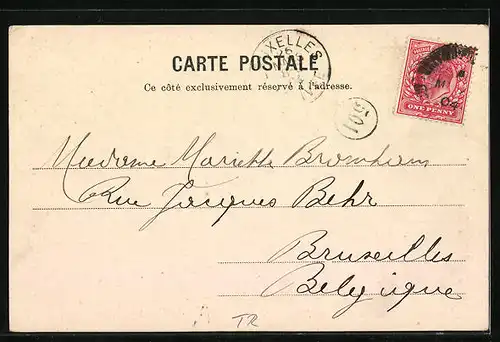 BRUXELLES
CARTE POSTALE
Ce côté exclusivement réservé à l'adresse.
ONE PENNY
04
301
Madame Mariette Bromham
Rue Jacques Behr
Bruxelles
Belgique
TR